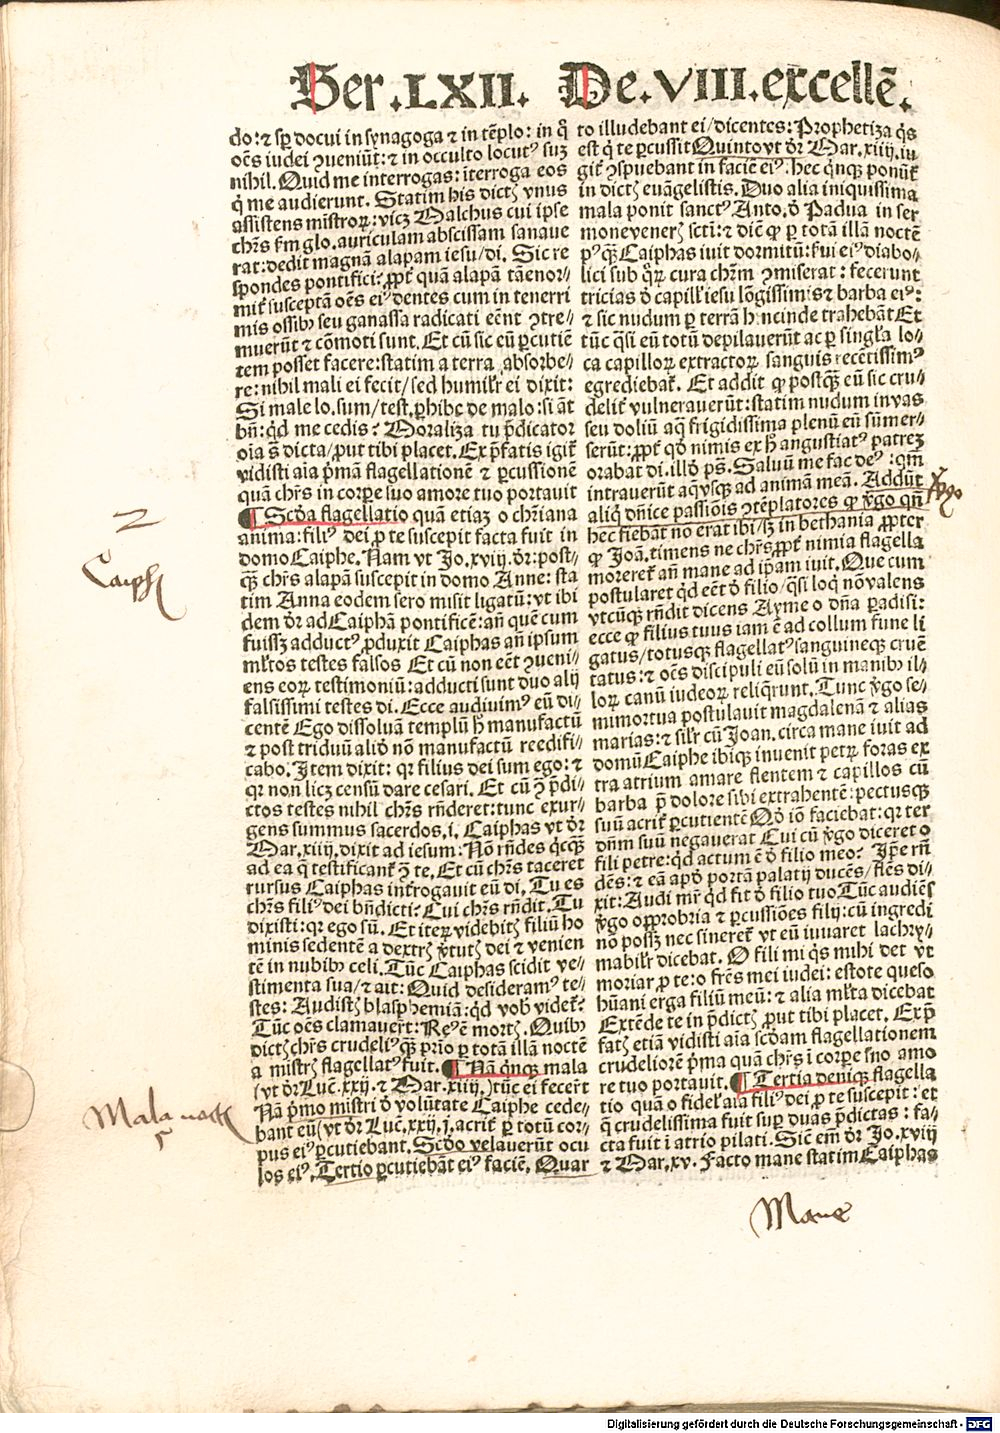 Ser .LXII. De .VIII. excellē.
do: ⁊ sp̄ docui in synagoga ⁊ in tēplo: in q̄
oēs iudei ↄueniūt: ⁊ in occulto locutꝰ suꝫ
nihil. Quid me interrogas: īterroga eos
q̄ me audierunt. Statim his dictꝭ vnus
assistens mīstroꝝ: vicꝫ Malchus cui ipse
chr̄s fm glo. auriculam abscissam sanaue
rat: dedit magnā alapam iesu/di. Sic re⸗
spondes pontifici: ꝓpt̄ quā alapā tā enor⸗
mit̄ susceptā oēs eiꝰ dentes cum in tenerri
mis ossibꝰ seu ganassa radicati eēnt ↄtre⸗
muerūt ⁊ cōmoti sunt. Et cū sic eū ꝑcutiē
tem posset facere: statim a terra absorbe⸗
re: nihil mali ei fecit/sed humilr̄ ei dixit:
Si male lo. sum/test. ꝑhibe de malo: si āt
bn̄: qd̄ me cedis? Moraliza tu p̄dicator
oīa s̄ dicta/ꝓut tibi placet. Ex p̄fatis igit̄
vidisti aīa p̄mā flagellationē ⁊ ꝑcussionē
quā chr̄s in corꝑe suo amore tuo portauit
¶ Scd̄a flagellatio quā etiaꝫ o chr̄iana
anima: filiꝰ dei ꝓ te suscepit facta fuit in
domo Caiphe. Nam vt Jo. xviij. dr̄: post⸗
qꝫ chr̄s alapā suscepit in domo Anne: sta
tim Anna eodem sero misit ligatū: vt ibi
dem dr̄ ad Caiphā pontificē: añ quē cum
fuissꝫ adductꝰ ꝓduxit Caiphas añ ipsum
ml̄tos testes falsos Et cū non eēt ↄueni⸗
ens eoꝝ testimoniū: adducti sunt duo alij
falsissimi testes di. Ecce audiuimꝰ eū di⸗
centē Ego dissoluā templū h̄ manufactū
⁊ post triduū aliō nō manufactū reedifi⸗
cabo. Item dixit: qꝛ filius dei sum ego: ⁊
qꝛ non licꝫ censū dare cesari. Et cū ↄ̄ p̄di⸗
ctos testes nihil chr̄s rn̄deret: tunc exur⸗
gens summus sacerdos. i. Caiphas vt dr̄
Mar. xiiij. dixit ad iesum: Nō rn̄des qͥcqꝫ
ad ea q̄ testificant̄ ↄ̄ te. Et cū chr̄s taceret
rursus Caiphas int̄rogauit eū di. Tu es
chr̄s filiꝰ dei bn̄dicti? Cui chr̄s rn̄dit. Tu
dixisti: qꝛ ego sū. Et iteꝝ videbitꝭ filiū ho
minis sedentē a dextrꝭ v̄tutꝭ dei ⁊ venien
tē in nubibꝰ celi. Tūc Caiphas scidit ve⸗
stimenta sua/⁊ ait: Quid desideramꝰ te⸗
stes: Audistꝭ blasphemiā: qd̄ vob̄ videt̄?
Tūc oēs clamauer̄t: Reꝰ ē mortꝭ. Quibꝰ
dictꝭ chr̄s crudeliꝰ qꝫ prio ꝑ totā illā noctē
a mīstrꝭ flagellatꝰ fuit. ¶ Nā qͥnqꝫ mala
(vt dr̄ Luc̄. xxij. ⁊ Mar. xiiij.) tūc ei fecer̄t
Nā p̄mo mīstri ō volūtate Caiphe cede⸗
bant eū (vt dr̄ Luc̄. xxij.) acrit̄ ꝑ totū cor⸗
pus eiꝰ ꝑcutiebant. Scd̄o velauerūt ocu
los eiꝰ. Tertio ꝑcutiebāt eiꝰ faciē. Quar
to illudebant ei/dicentes: Prophetiza qͥs
est qͥ te ꝑcussit Quinto vt dr̄ Mar. xiiij. iu
git̄ ↄspuebant in faciē eiꝰ: hec qͥnqꝫ ponūt̄
in dictꝭ euāgelistis. Duo alia iniquissima
mala ponit sanctꝰ Anto. ō Padua in ser
mone venerꝭ scti: ⁊ dic̄ ꝙ ꝑ totā illā noctē
pꝰqꝫ Caiphas iuit dormitū: sui eiꝰ diabo⸗
lici sub qͦꝝ cura chrm̄ ↄmiserat: fecerunt
tricias ō capill̄ iesu lōgissimis ⁊ barba eiꝰ:
⁊ sic nudum ꝑ terrā hincinde trahebāt Et
tūc qͣsi eū totū depilauerūt ac ꝑ singl̄a lo⸗
ca capilloꝝ extractoꝝ sanguis recētissimꝰ
egrediebat̄. Et addit ꝙ postqꝫ eū sic cru⸗
delit̄ vulnerauerūt: statim nudum in vas
seu doliū aq̄ frigidissima plenū eū sūmer⸗
serūt: ꝓpt̄ qd̄ nimis ex h̄ angustiatꝰ patreꝫ
orabat di. illō ps̄. Saluū me fac deꝰ: qm̄
intrauerūt aq̄ vsqꝫ ad animā meā. Addūt
aliq̄ dn̄ice passiōis ↄtēplatores ꝙ v̄go qn̄
hec fiebāt nō erat ibi/sꝫ in bethania ꝓpter
ꝙ Joā. timens ne chr̄s ꝓpt̄ nimia flagella
moreret̄ añ mane ad ip̄am iuit. Que cum
postularet qd̄ eēt ō filio/qͣsi loq̄ nō valens
vtcūqꝫ rn̄dit dicens Ayme o dn̄a ꝑadisi:
ecce ꝙ filius tuus iam ē ad collum fune li
gatus/totusqꝫ flagellatꝰ sanguineqꝫ cruē
tatus: ⁊ oēs discipuli eū solū in manibꝰ il⸗
loꝝ canū iudeoꝝ reliq̄runt. Tunc v̄go se⸗
mimortua postulauit magdalenā ⁊ alias
marias: ⁊ sil̄r cū Joan. circa mane iuit ad
domū Caiphe ibiqꝫ inuenit petꝝ foras ex
tra atrium amare flentem ⁊ capillos cū
barba p̄ dolore sibi extrahentē: pectusqꝫ
suū acrit̄ ꝑcutientē Qd̄ iō faciebat: qꝛ ter
dn̄m suū negauerat Cui cū v̄go diceret o
fili petre: qd̄ actum ē ō filio meo? Ip̄e rn̄
dēs: ⁊ eā apd̄ portā palatij ducēs/flēs di⸗
xit: Audi mr̄ qd̄ fit ō filio tuo Tūc audiēs
v̄go opꝓbria ⁊ ꝑcussiōes filij: cū ingredi
nō possꝫ nec sineret̄ vt eū iuuaret lachry⸗
mabilr̄ dicebat. O fili mi qͥs mihi det vt
moriar ꝓ te: o fr̄es mei iudei: estote queso
hūani erga filiū meū: ⁊ alia ml̄ta dicebat
Extēde te in p̄dictꝭ ꝓut tibi placet. Ex p̄
fatꝭ etiā vidisti aīa scd̄am flagellationem
crudeliorē p̄ma quā chr̄s ī corꝑe suo amo
re tuo portauit. ¶ Tertia deniqꝫ flagella
tio quā o fidel̄ aīa filiꝰ dei ꝓ te suscepit: et
q̄ crudelissima fuit suꝑ duas p̄dictas: fa⸗
cta fuit ī atrio pilati. Sic̄ em̄ dr̄ Jo. xviij
⁊ Mar. xv. Facto mane statim Caiphas
2
Caiph
Mala
5
v̄go
Mane
Digitalisierung gefördert durch die Deutsche Forschungsgemeinschaft - DFG